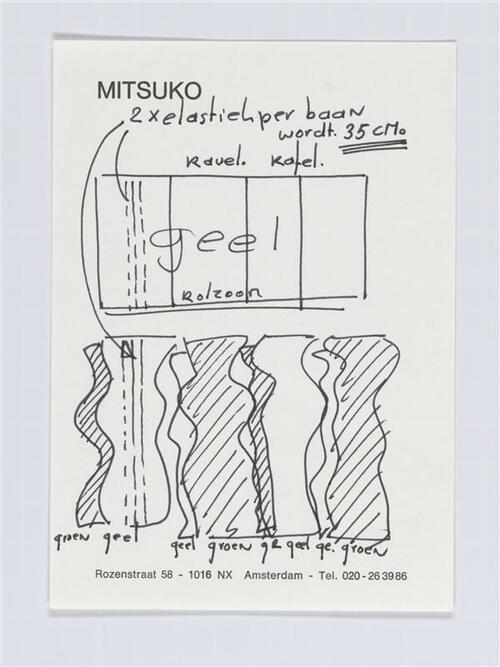 MITSUKO
2xelastiek per baan
wordt. 35 CM.
Ravel. Rafel.
geel
Rolzoom
groen geel geel groen gR geel ge. groen
Rozenstraat 58 - 1016 NX Amsterdam - Tel. 020-263986